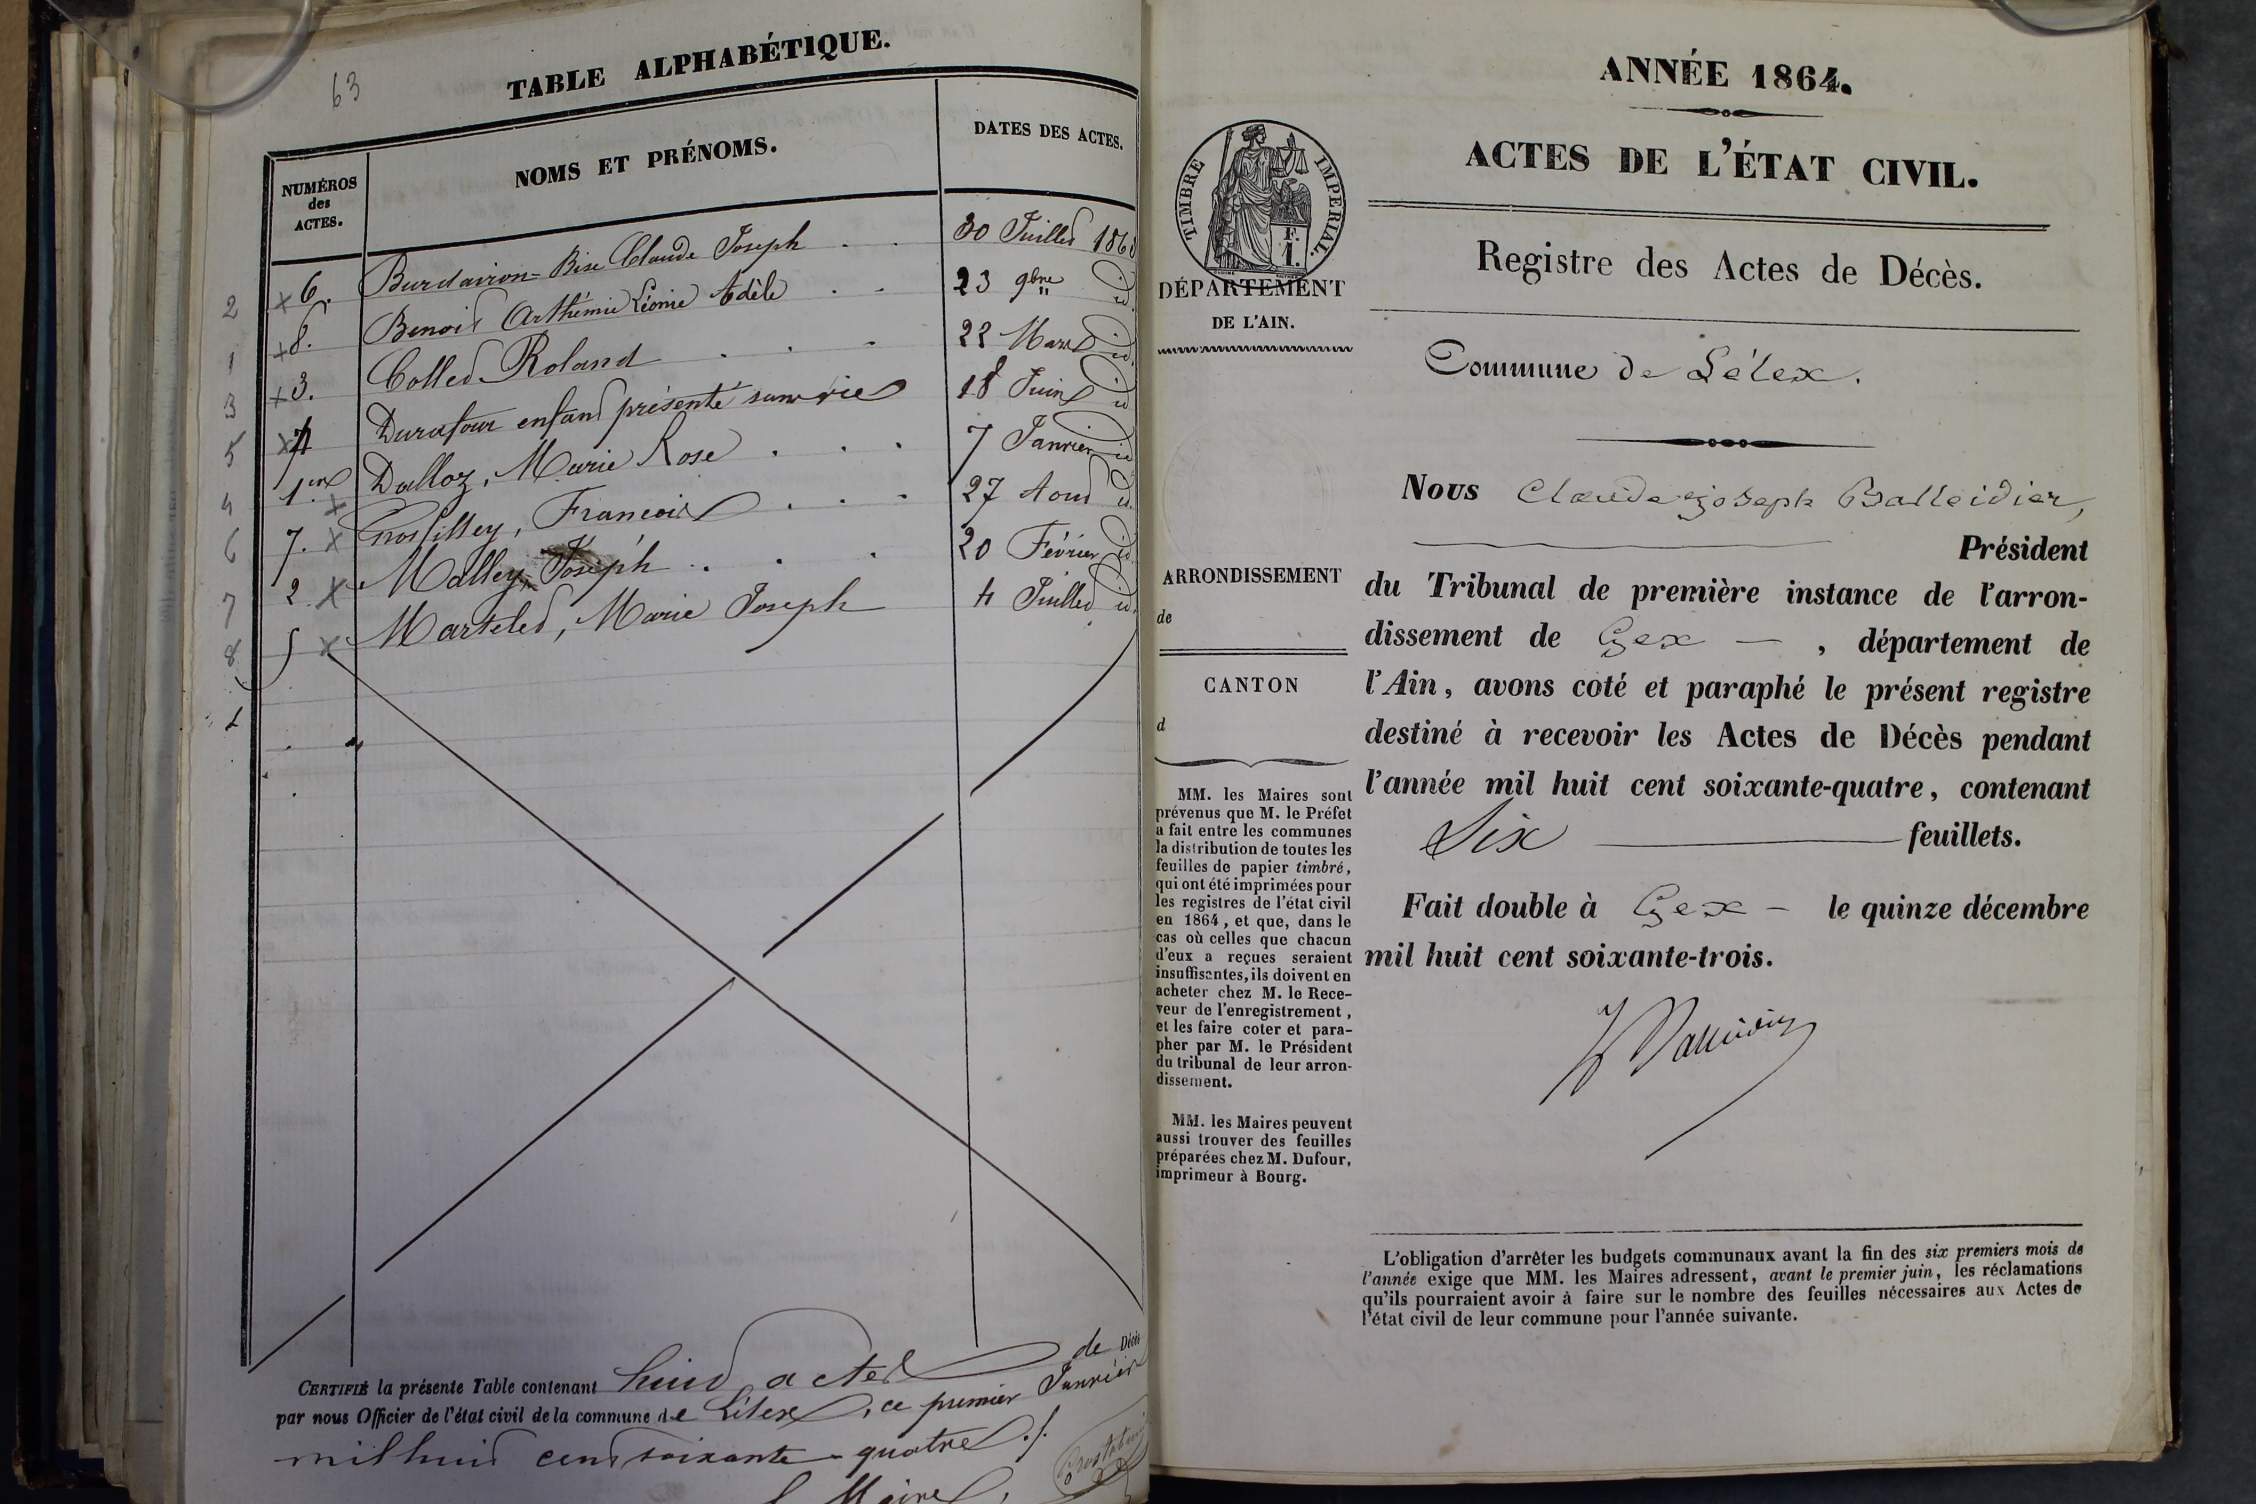 63
TABLE ALPHABÉTIQUE.
NUMÉROS des ACTES.
NOMS ET PRÉNOMS.
DATES DES ACTES.
2 6. Burdairon-Bise Claude Joseph 30 Juillet 186
1 8. Benoit Arthémie Léonie Adèle 23 9bre id.
3 3. Collet Roland 22 Mars id.
5 4 Durafour enfant présenté sans vie 18 Juin id
4 1er Dalloz, Marie Rose 7 Janvier id
6 7. Grosfilley, François 27 Aout id.
7 2 Malley, Joseph 20 Février id
8 5 Martelet, Marie Joseph 4 Juillet id.
CERTIFIÉ la présente Table contenant huit actes de Décès
par nous Officier de l'état civil de la commune de Lélex, ce premier Janvier
mil huit cent soixante-quatre ./.
Maire,
ANNÉE 1864.
ACTES DE L'ÉTAT CIVIL.
Registre des Actes de Décès.
TIMBRE IMPERIAL.
F. 1.
DÉPARTEMENT
DE L'AIN.
ARRONDISSEMENT
de
CANTON
d
MM. les Maires sont
prévenus que M. le Préfet
a fait entre les communes
la distribution de toutes les
feuilles de papier timbré,
qui ont été imprimées pour
les registres de l'état civil
en 1864, et que, dans le
cas où celles que chacun
d'eux a reçues seraient
insuffisantes, ils doivent en
acheter chez M. le Rece-
veur de l'enregistrement,
et les faire coter et para-
pher par M. le Président
du tribunal de leur arron-
dissement.
MM. les Maires peuvent
aussi trouver des feuilles
préparées chez M. Dufour,
imprimeur à Bourg.
Commune de Lélex.
Nous Claude joseph Balleidier,
Président
du Tribunal de première instance de l'arron-
dissement de Gex — , département de
l'Ain, avons coté et paraphé le présent registre
destiné à recevoir les Actes de Décès pendant
l'année mil huit cent soixante-quatre, contenant
Six feuillets.
Fait double à Gex — le quinze décembre
mil huit cent soixante-trois.
Balleidier
L'obligation d'arrêter les budgets communaux avant la fin des six premiers mois de
l'année exige que MM. les Maires adressent, avant le premier juin, les réclamations
qu'ils pourraient avoir à faire sur le nombre des feuilles nécessaires aux Actes de
l'état civil de leur commune pour l'année suivante.